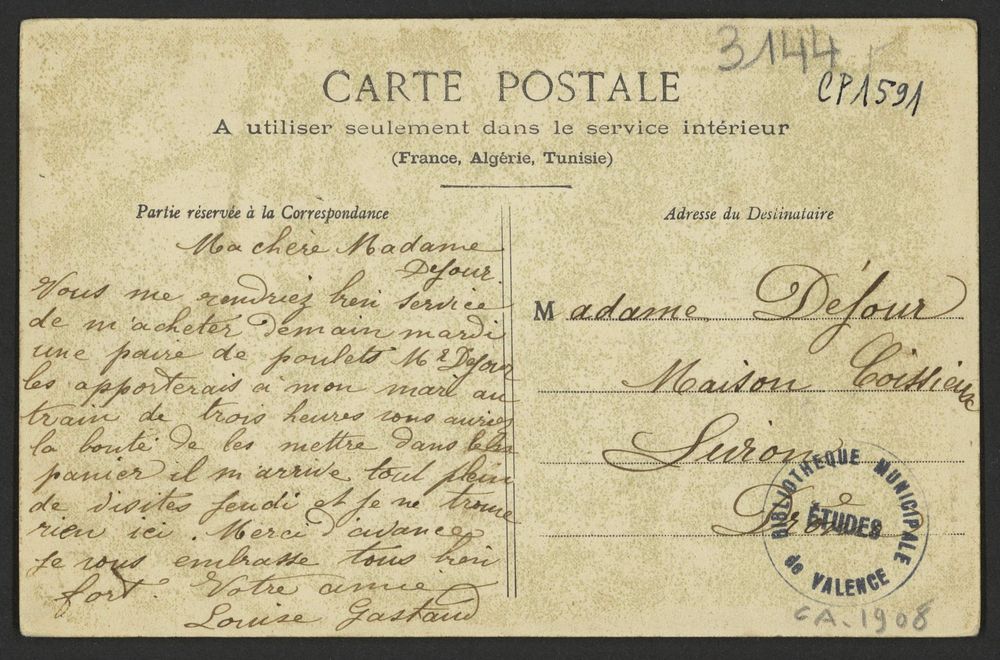 3144
CP1591
CARTE POSTALE
A utiliser seulement dans le service intérieur
(France, Algérie, Tunisie)
Partie réservée à la Correspondance
Ma chère Madame
Defour
Vous me rendriez bien service
de m'acheter demain mardi
une paire de poulets Mr Defour
les apporterais a mon mari au
train de trois heures vous auriez
la bonté de les mettre dans
panier il m'arrive tout plein
de visites jeudi et je ne trouve
rien ici. Merci d'avance
Je vous embrasse tous bien
fort. Votre amie
Louise Gastaud
Adresse du Destinataire
Madame Défour
Maison Coissieux
Livron
Drôme
BIBLIOTHEQUE MUNICIPALE
ÉTUDES
de VALENCE
CA. 1908